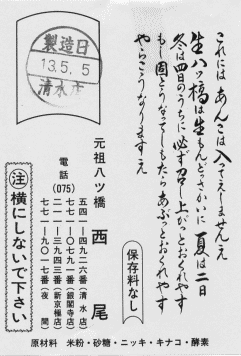 これには あんこは入てえしまへんえ
生八ッ橋は生もんどっさかいに 夏は二日
冬は四日のうちに必ず召し上がっとおくれやす
もし固とうなってしもたらあぶっとおくれやす
やらこうなりますえ
保存料なし
元祖八ッ橋 西尾
電話(075)
五四一-四九二六番(清水店)
七五一-七〇一九番(銀閣寺店)
二一一-三九四三番(新京極店)
七七一-九〇一七番(夜間)
製造日
13.5.5
清水店
注 横にしないで下さい
原材料 米粉・砂糖・ニッキ・キナコ・酵素